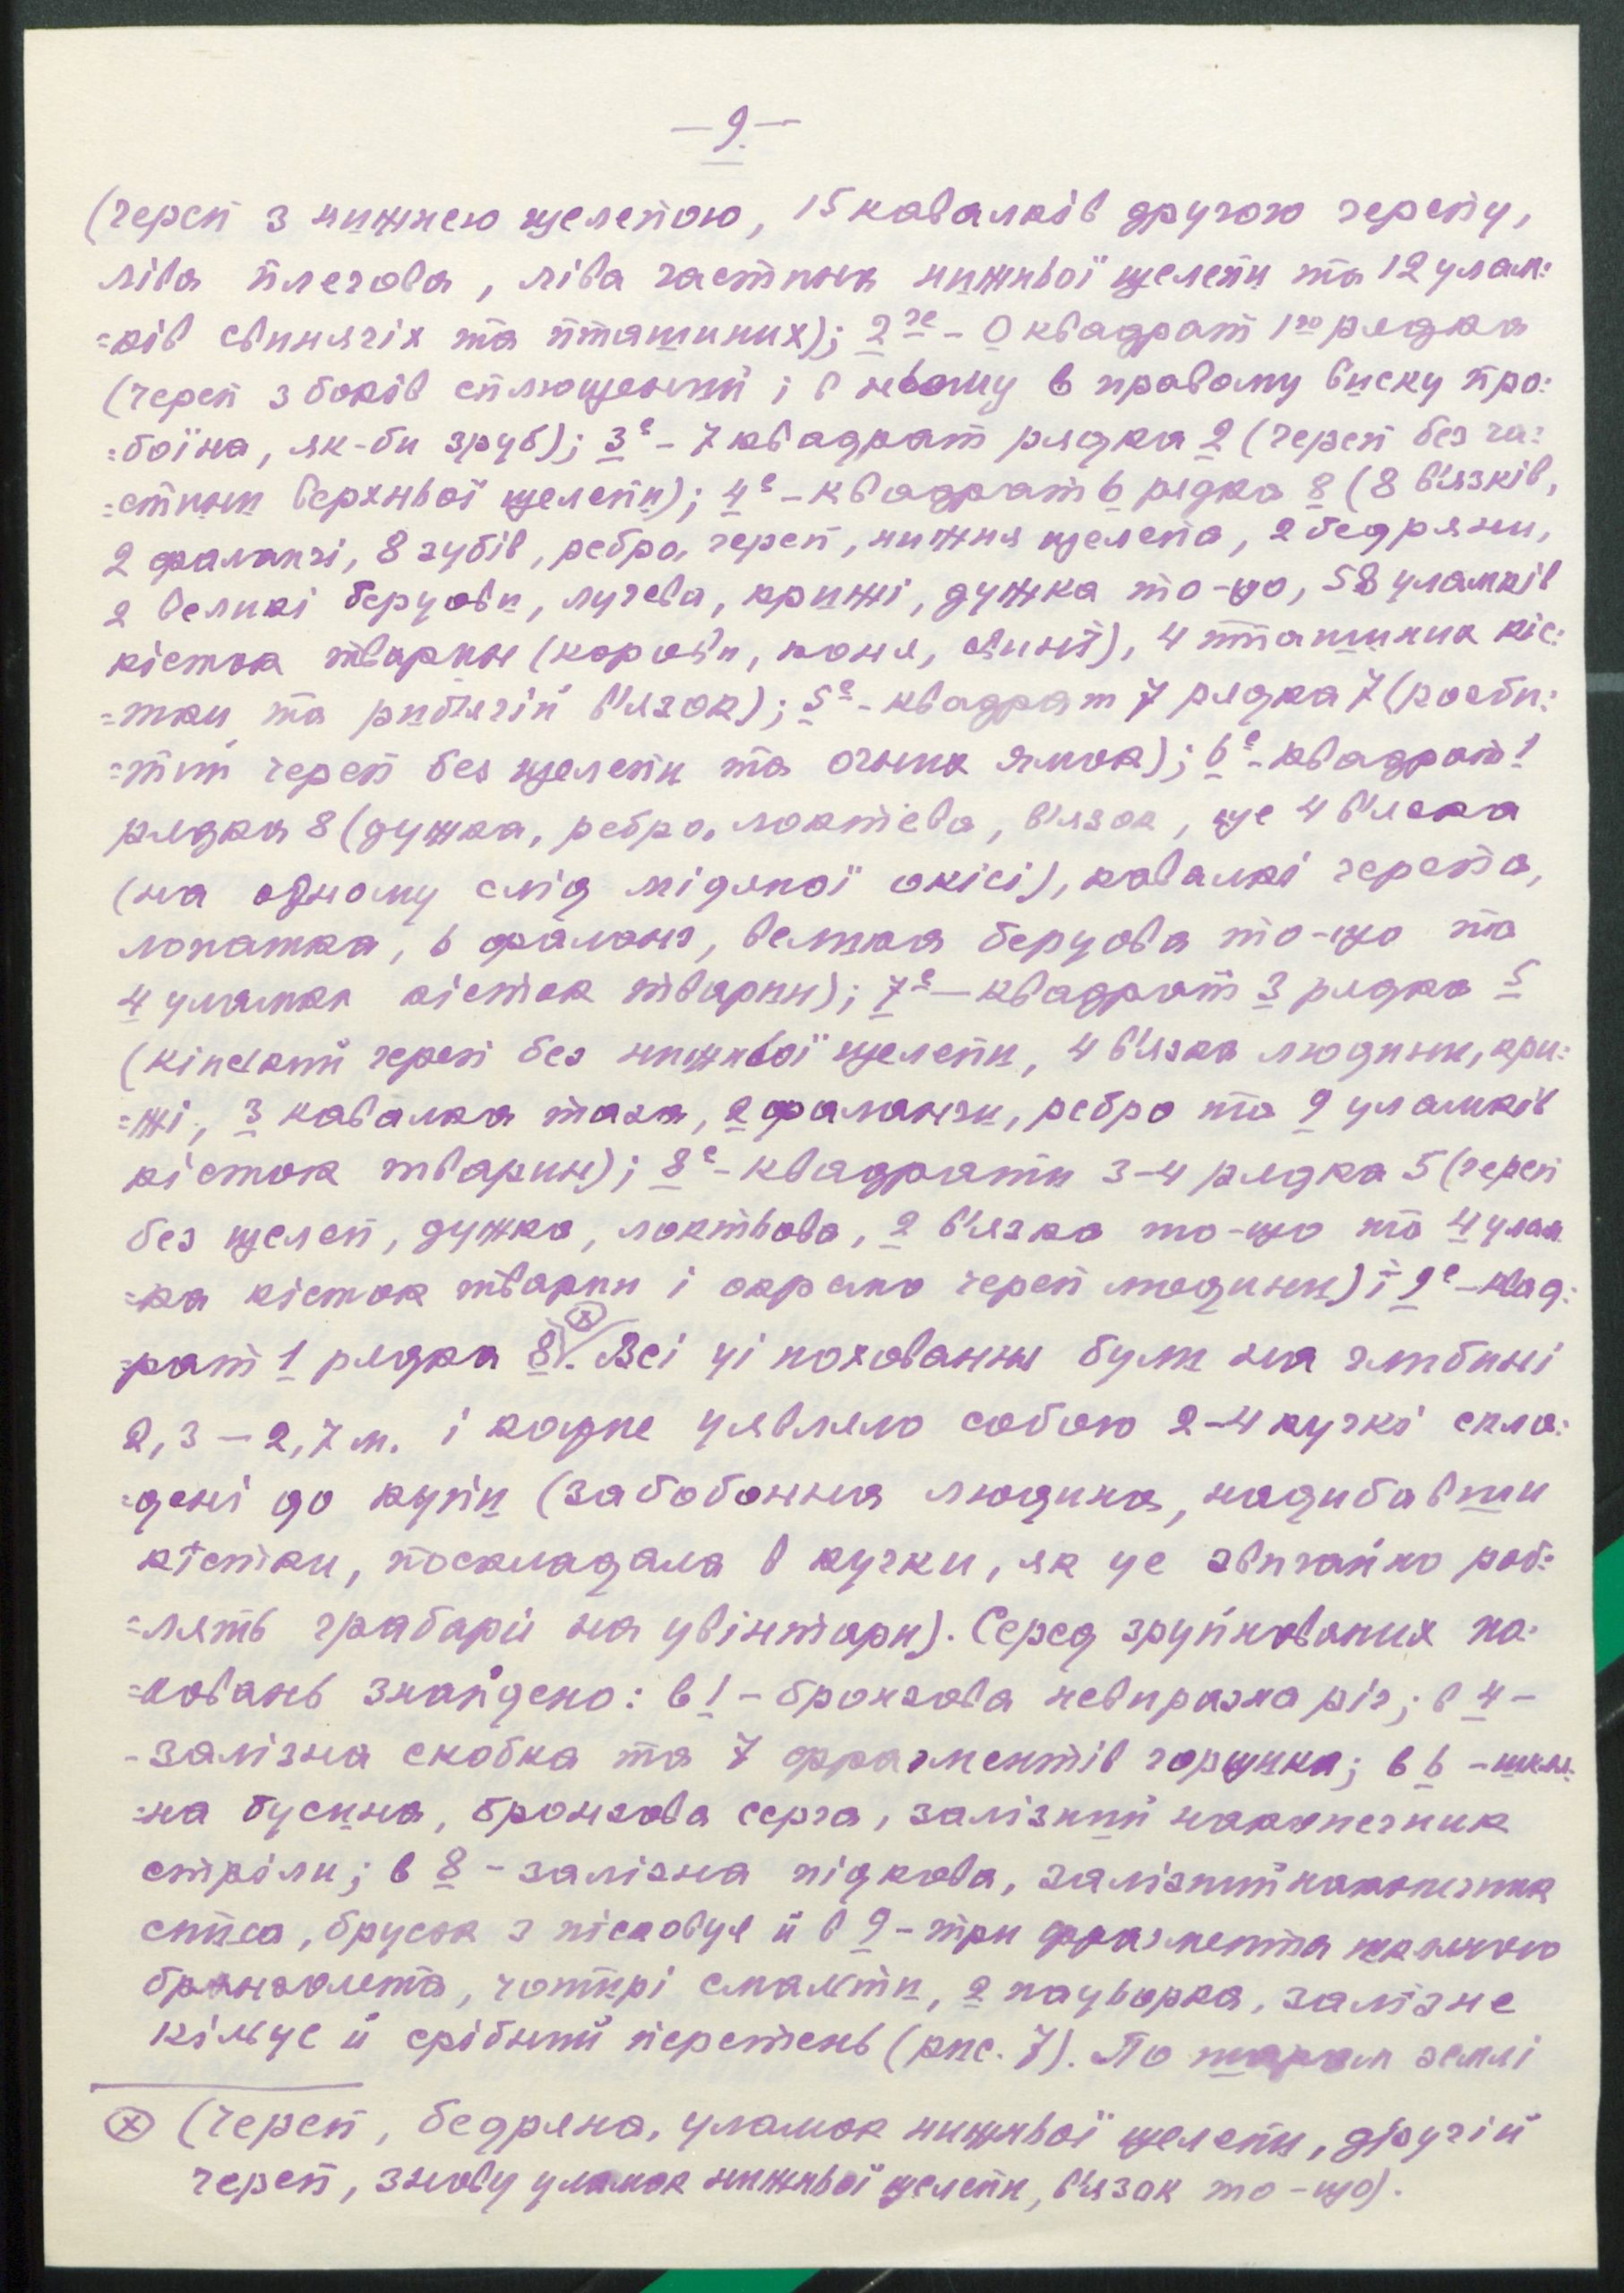 — 9. —
(череп з нижнею щелепою, 15 кавалків другого черепу,
ліва плечова, ліва частина нижньої щелепи та 12 улам:
=ків свинячіх та пташиних); 2ге – 0 квадрат 1го рядка
(череп з боків сплющений і в ньому в правому виску про:
=боїна, як-би зруб); 3е – 7 квадрат рядка 2 (череп без ча:
=стини верхньої щелепи); 4е – квадрат 6 рядка 8 (8 в'язків,
2 фаланги, 8 зубів, ребро, череп, нижня щелепа, 2 бедряни,
2 великі берцови, лучева, крижі, дужка то-що, 58 уламків
кісток тварин (корови, коня, свині), 4 пташиних кіс:
=тки та риб'ячій в'язок); 5е – квадрат 7 рядка 7 (розби:
=тий череп без щелепи та очних ямок); 6е – квадрат 1
рядка 8 (дужка, ребро, локтєва, в'язок, ще 4 в'язка
(на одному слід мідяної окісі), кавалкі черепа,
лопатка, 6 фаланг, велика берцова то-що та
4 уламка кісток тварин); 7е — квадрат 3 рядка 5
(кінський череп без нижньої щелепи, 4 в'язка людини, кри:
=жі, 3 кавалка таза, 2 фаланги, ребро та 9 уламків
кісток тварин); 8е – квадрати 3–4 рядка 5 (череп
без щелеп, дужка, локтьова, 2 в'язка то-що та 4 улам
=ка кісток тварин і окремо череп людини) і 9е – квад:
=рат 1 рядка 8 ⊗. Всі ці поховання були на глибині
2,3 – 2,7 м. і кожне уявляло собою 2–4 кучкі скла:
=дені до купи (забобонна людина, надибавши
кістки, поскладала в кучки, як це звичайно роб:
=лять грабарі на цвінтари). Серед зруйнованих по:
=ховань знайдено: в 1 – бронзова невиразна річ; в 4 –
– залізна скобка та 7 фрагментів горщика; в 6 – шкля:
=на бусина, бронзова серга, залізний наконечник
стріли; в 8 – залізна підкова, залізний наконечник
списа, брусок з пісковця й в 9 – три фрагмента шкляного
бранзолета, чотирі смальти, 2 пацьорка, залізне
кільце й срібний перстень (рис. 7). По шарам землі
⊗ (Череп, бедряна, уламок нижньої щелепи, другій
череп, знову уламок нижньої щелепи, в'язок то-що).